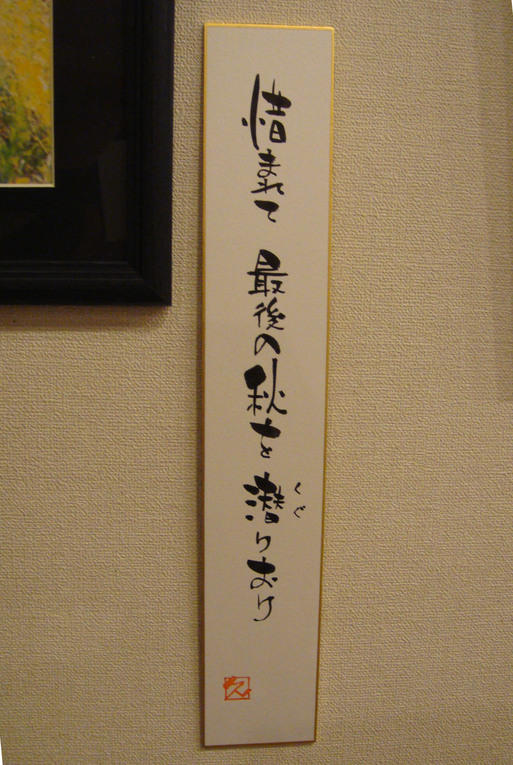 惜まれて 最後の秋を潜りおり
くぐ